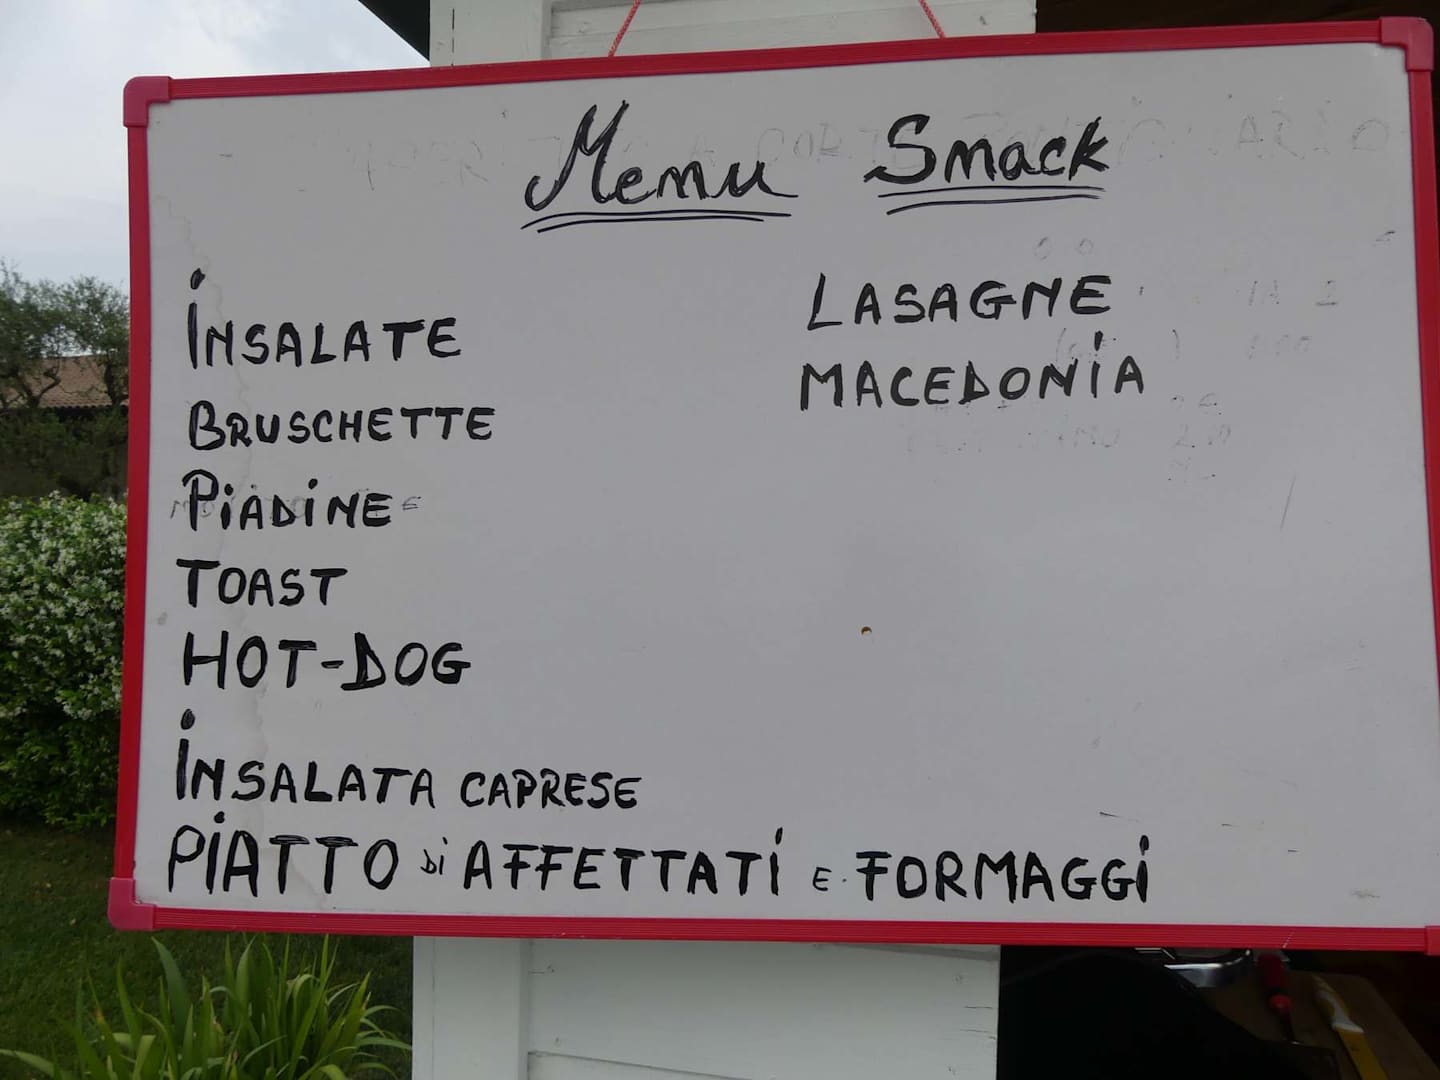 Menu Smack
INSALATE
BRUSCHETTE
PIADINE
TOAST
HOT-DOG
INSALATA CAPRESE
PIATTO DI AFFETTATI E FORMAGGI
LASAGNE
MACEDONIA